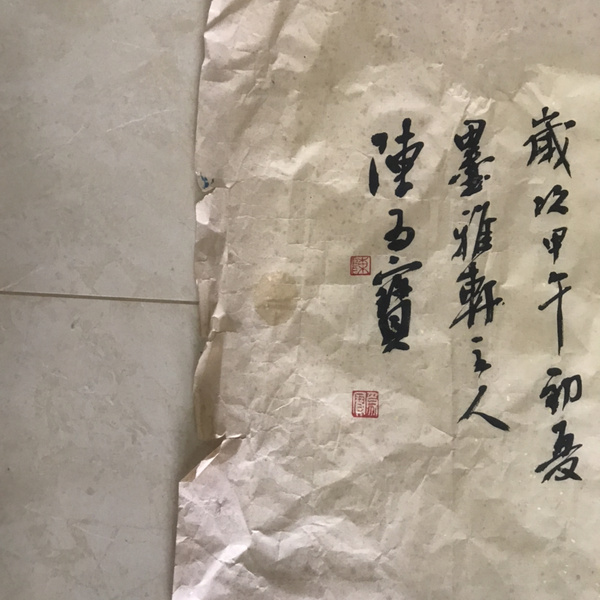 歲次甲午初夏
墨雅軒主人
陳為寶
陳